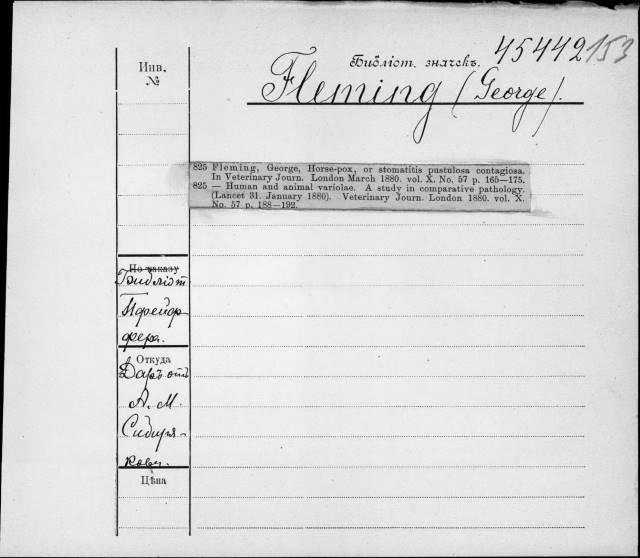 Инв.
№
Библіот. значекъ. 45442 153
Fleming (George).
825 Fleming, George, Horse-pox, or stomatitis pustulosa contagiosa.
In Veterinary Journ. London March 1880. vol. X. No. 57 p. 165—175.
825 — Human and animal variolae. A study in comparative pathology.
(Lancet 31. January 1880). Veterinary Journ. London 1880. vol. X.
No. 57 p. 188—192.
По заказу
Библіот
Пфейф-
фера.
Откуда
Даръ отъ
А. М.
Сибиря-
кова.
Цѣна